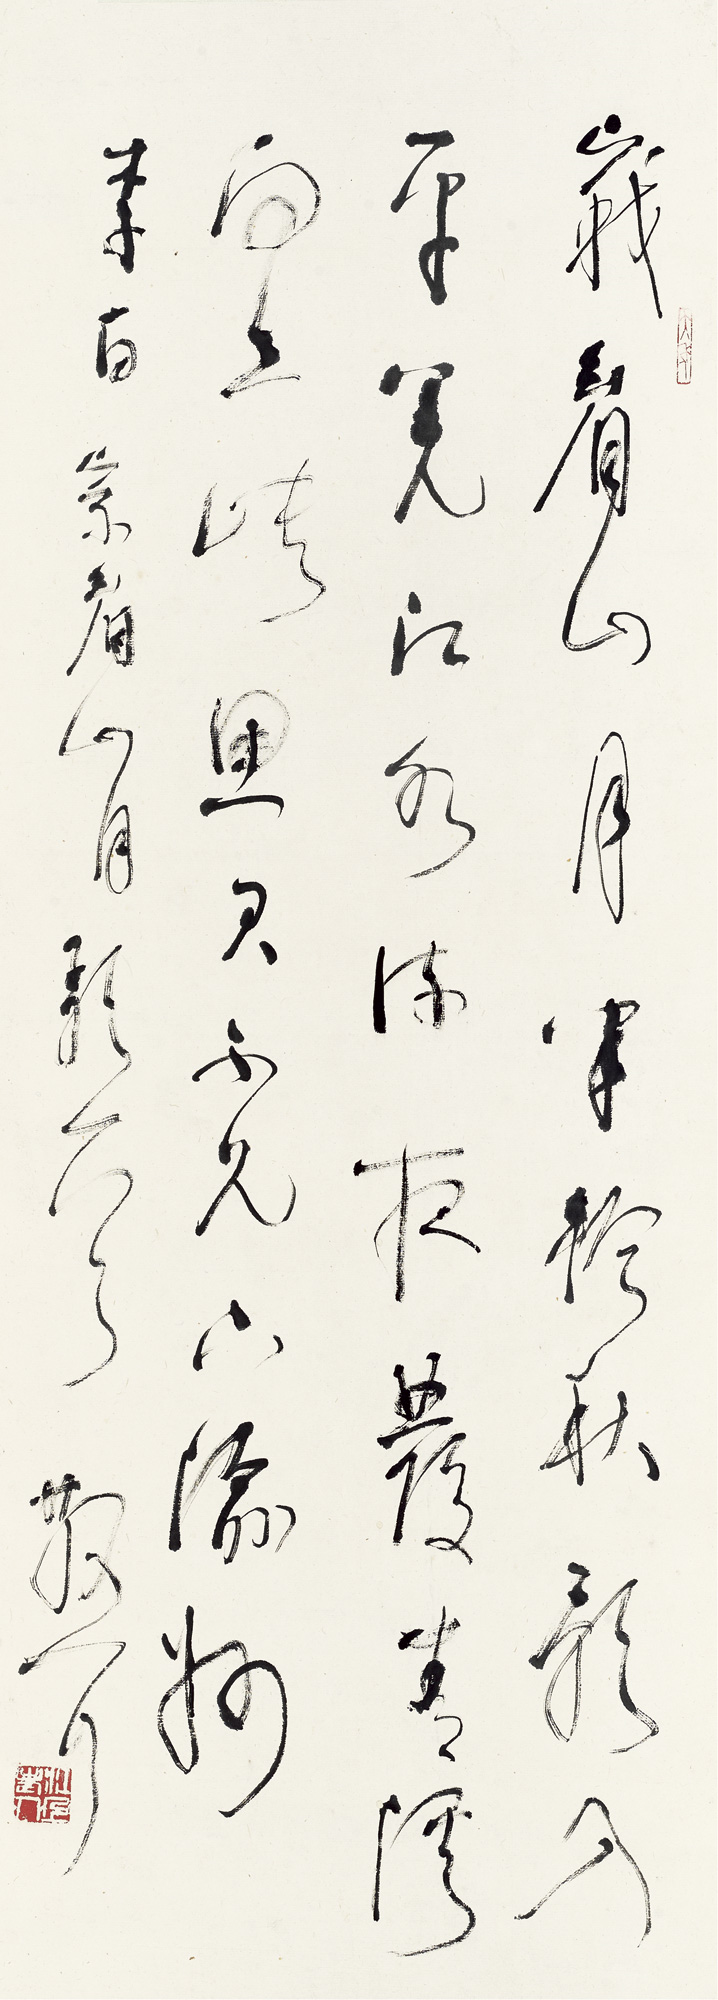 峩眉山月半輪秋影入
平羌江水流夜發清溪
向三峽思君不見下渝州
李白峩眉山月歌 散耳